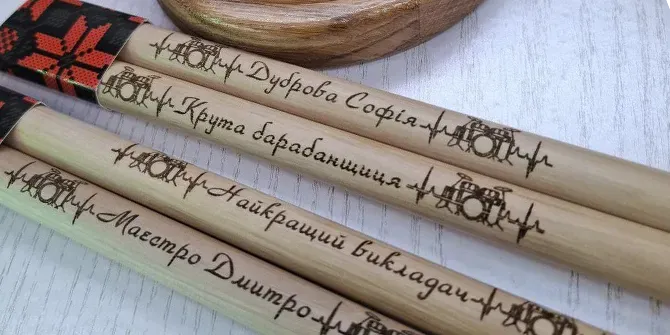 Дуброва Софія
Крута барабанщиця
Найкращий викладач
Маєстро Дмитро